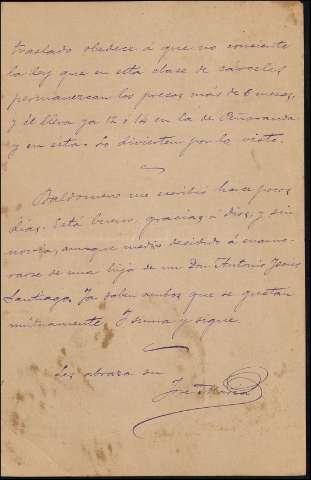 traslado obedece á que no consiente
la ley que en esta clase de cárceles
permanezcan los presos más de 6 meses,
y él lleva ya 12 ó 14 en la de Peñaranda
y en esta. Lo divierten por lo visto.
Baldomero me escribió hace pocos
dias. Está bueno, gracias á Dios, y sin
novia, aunque medio decidido á enamo-
rarse de una hija de un Don Antonio
Santiago. Ya saben ambos que se gustan
mútuamente. Y suma y sigue.
Les abraza su
José María